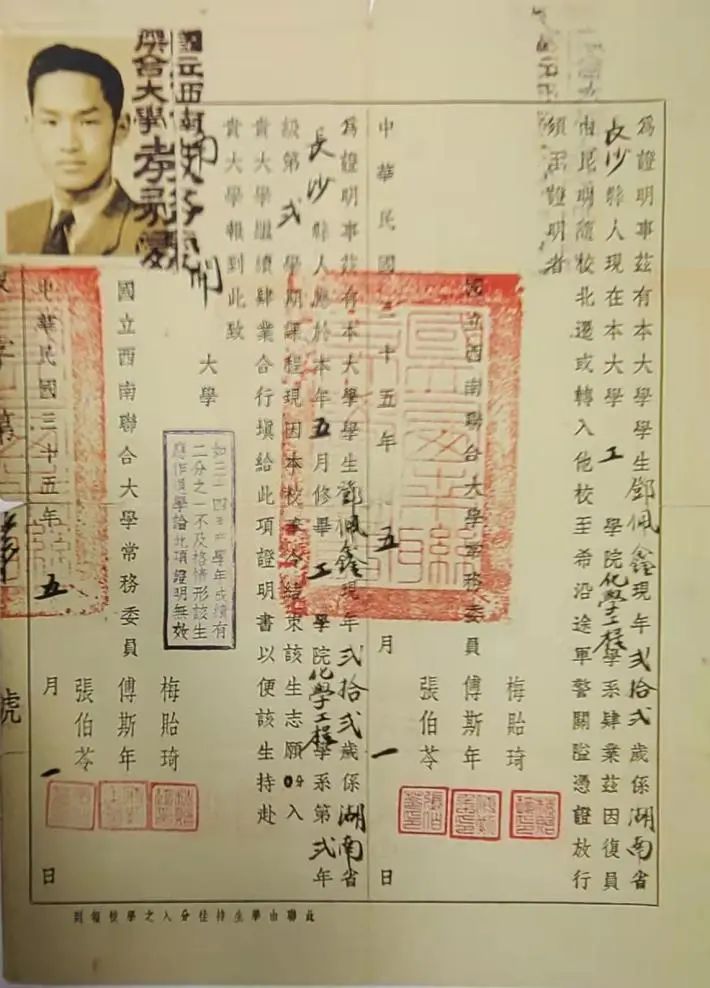 為證明事茲有本大學學生鄧佩鑫現年弍拾弍歲係湖南省
長沙縣人現在本大學工學院化學工程學系肄業茲因復員
由昆明隨校北遷或轉入他校至希沿途軍警關隘憑證放行
須至證明者
國立西南聯合大學常務委員
梅貽琦
傅斯年
張伯苓
中華民國三十五年五月一日
為證明事茲有本大學學生鄧佩鑫現年弍拾弍歲係湖南省
長沙縣人應於本年五月修畢工學院化學工程學系第弍年
級第弍學期課程現因本校奉令結束該生志願入
貴大學繼續肄業合行填給此項證明書以便該生持赴
貴大學報到此致
南開
大學
如三十四年度學年成績有
二分之一不及格情形該生
應作退學論此項證明無效
國立西南聯合大學常務委員
梅貽琦
傅斯年
張伯苓
中華民國三十五年五月一日
字第
號
此聯由學生持往分入之學校報到